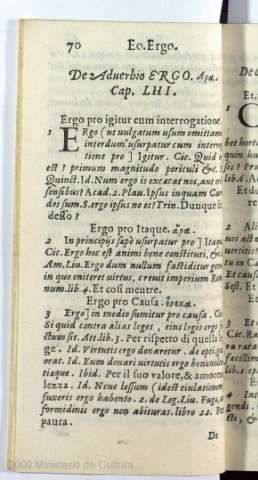 70 Eo. Ergo.
De Aduerbio ERGO. Apa.
Cap. LIII.
Ergo pro igitur cum interrogatione.
1 ERgo (ut uulgatum usum omittam
interdum usurpatur cum interro
tione pro ] Igitur. Cic. Quid
est? primum magnitudo periculi &c.
Quinct. Id. Num ergo is excæcat nos, aut
sensibus? Acad. 2. Plau. Ipsus inquam Car
dos sum. S. ergo ipsus ne es? Trin. Dunque
desso?
Ergo pro Itaque. ἄρα.
2 In principijs sæpè usurpatur pro ] Itaq;
Cic. Ergo hoc est animi bene constituti, &
Am. Liu. Ergo dum nullum fastiditur gen
in quo eniteret uirtus, creuit imperium Rom
num. lib. 4. Et cosi mentre.
Ergo pro Causa. ἕνεκα.
3 Ergo] in medio sumitur pro causa. Cic
Si quid contra alias leges, eius legis ergo
ctum sit. Att. lib. 3. Per rispetto di quella
ge. Id. Virtutis ergo donaretur. de opti. ge
orat. Id. Eum donari uirtutis ergo beneuolen
tiaque. Ibid. Per il suo valore, & amoreuo
lezza. Id. Neue lessum (idest eiulationem
funeris ergo habento. 2. de Log. Liu. Fugæ,
formidinis ergo non abituros. libro 22. Per
paura.
De
2009 Ministerio de Cultura